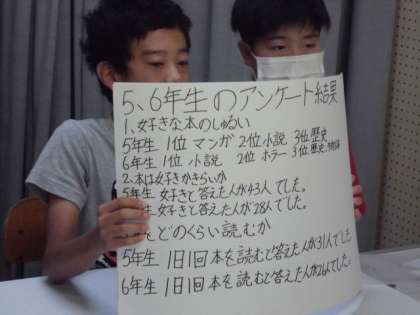 5、6年生のアンケート結果
1、好きな本のしゅるい
5年生 1位マンガ 2位小説 3位歴史
6年生 1位小説 2位ホラー 3位歴史、物語
2、本は好きかきらいか
5年生 好きと答えた人が43人でした。
年生 好きと答えた人が28人でした。
をどのくらい読むか
5年生 1日1回本を読むと答えた人が31人でした
6年生 1日1回本を読むと答えた人が26人でした。